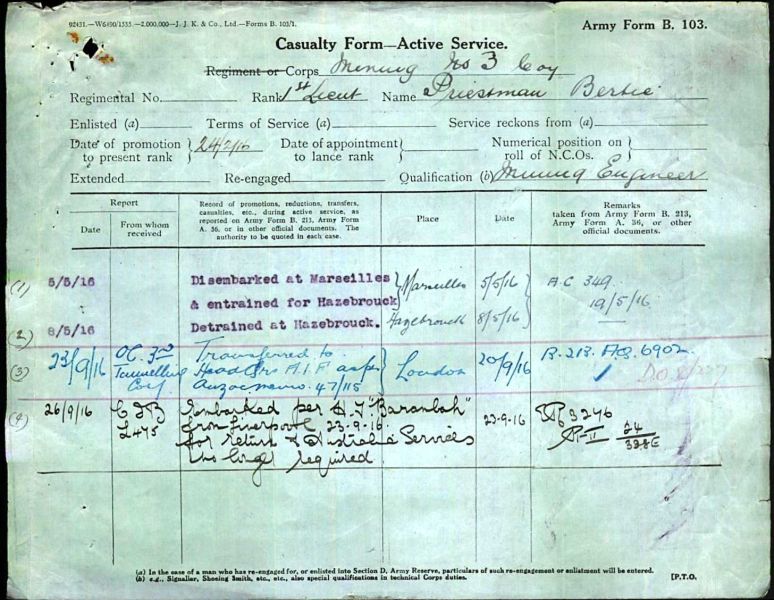 92431.—W6490/1535.—2,000,000—J. J. K. & Co., Ltd.—Forms B. 103/1.
Army Form B. 103.
Casualty Form—Active Service.
Regiment or Corps Mining No 3 Coy
Regimental No. Rank 1st Lieut Name Priestman Bertie
Enlisted (a) Terms of Service (a) Service reckons from (a)
Date of promotion to present rank } 24/2/16 Date of appointment to lance rank } Numerical position on roll of N.C.Os. }
Extended Re-engaged Qualification (b) Mining Engineer
Report
Date
From whom received
Record of promotions, reductions, transfers,
casualties, etc., during active service, as
reported on Army Form B. 213, Army Form
A. 36, or in other official documents. The
authority to be quoted in each case.
Place
Date
Remarks
taken from Army Form B. 213,
Army Form A. 36, or other
official documents.
(1) 5/5/16 Disembarked at Marseilles Marseilles 5/5/16 A.C 349
& entrained for Hazebrouck 19/5/16
(2) 8/5/16 Detrained at Hazebrouck. Hazebrouck 8/5/16
(3) 23/9/16 OC. 3rd Transferred to London 20/9/16 B. 213. 6902
Tunnelling Head Qrs A.I.F as per
Coy 47/115
(4) 26/9/16 Embarked per H.T "Barambah" 23-9-16 3276
L475 from Liverpool 23-9-16
for return to Australia Services
no longer required.
(a) In the case of a man who has re-engaged for, or enlisted into Section D, Army Reserve, particulars of such re-engagement or enlistment will be entered.
(b) e.g., Signaller, Shoeing Smith, etc., etc., also special qualifications in technical Corps duties.
[P.T.O.